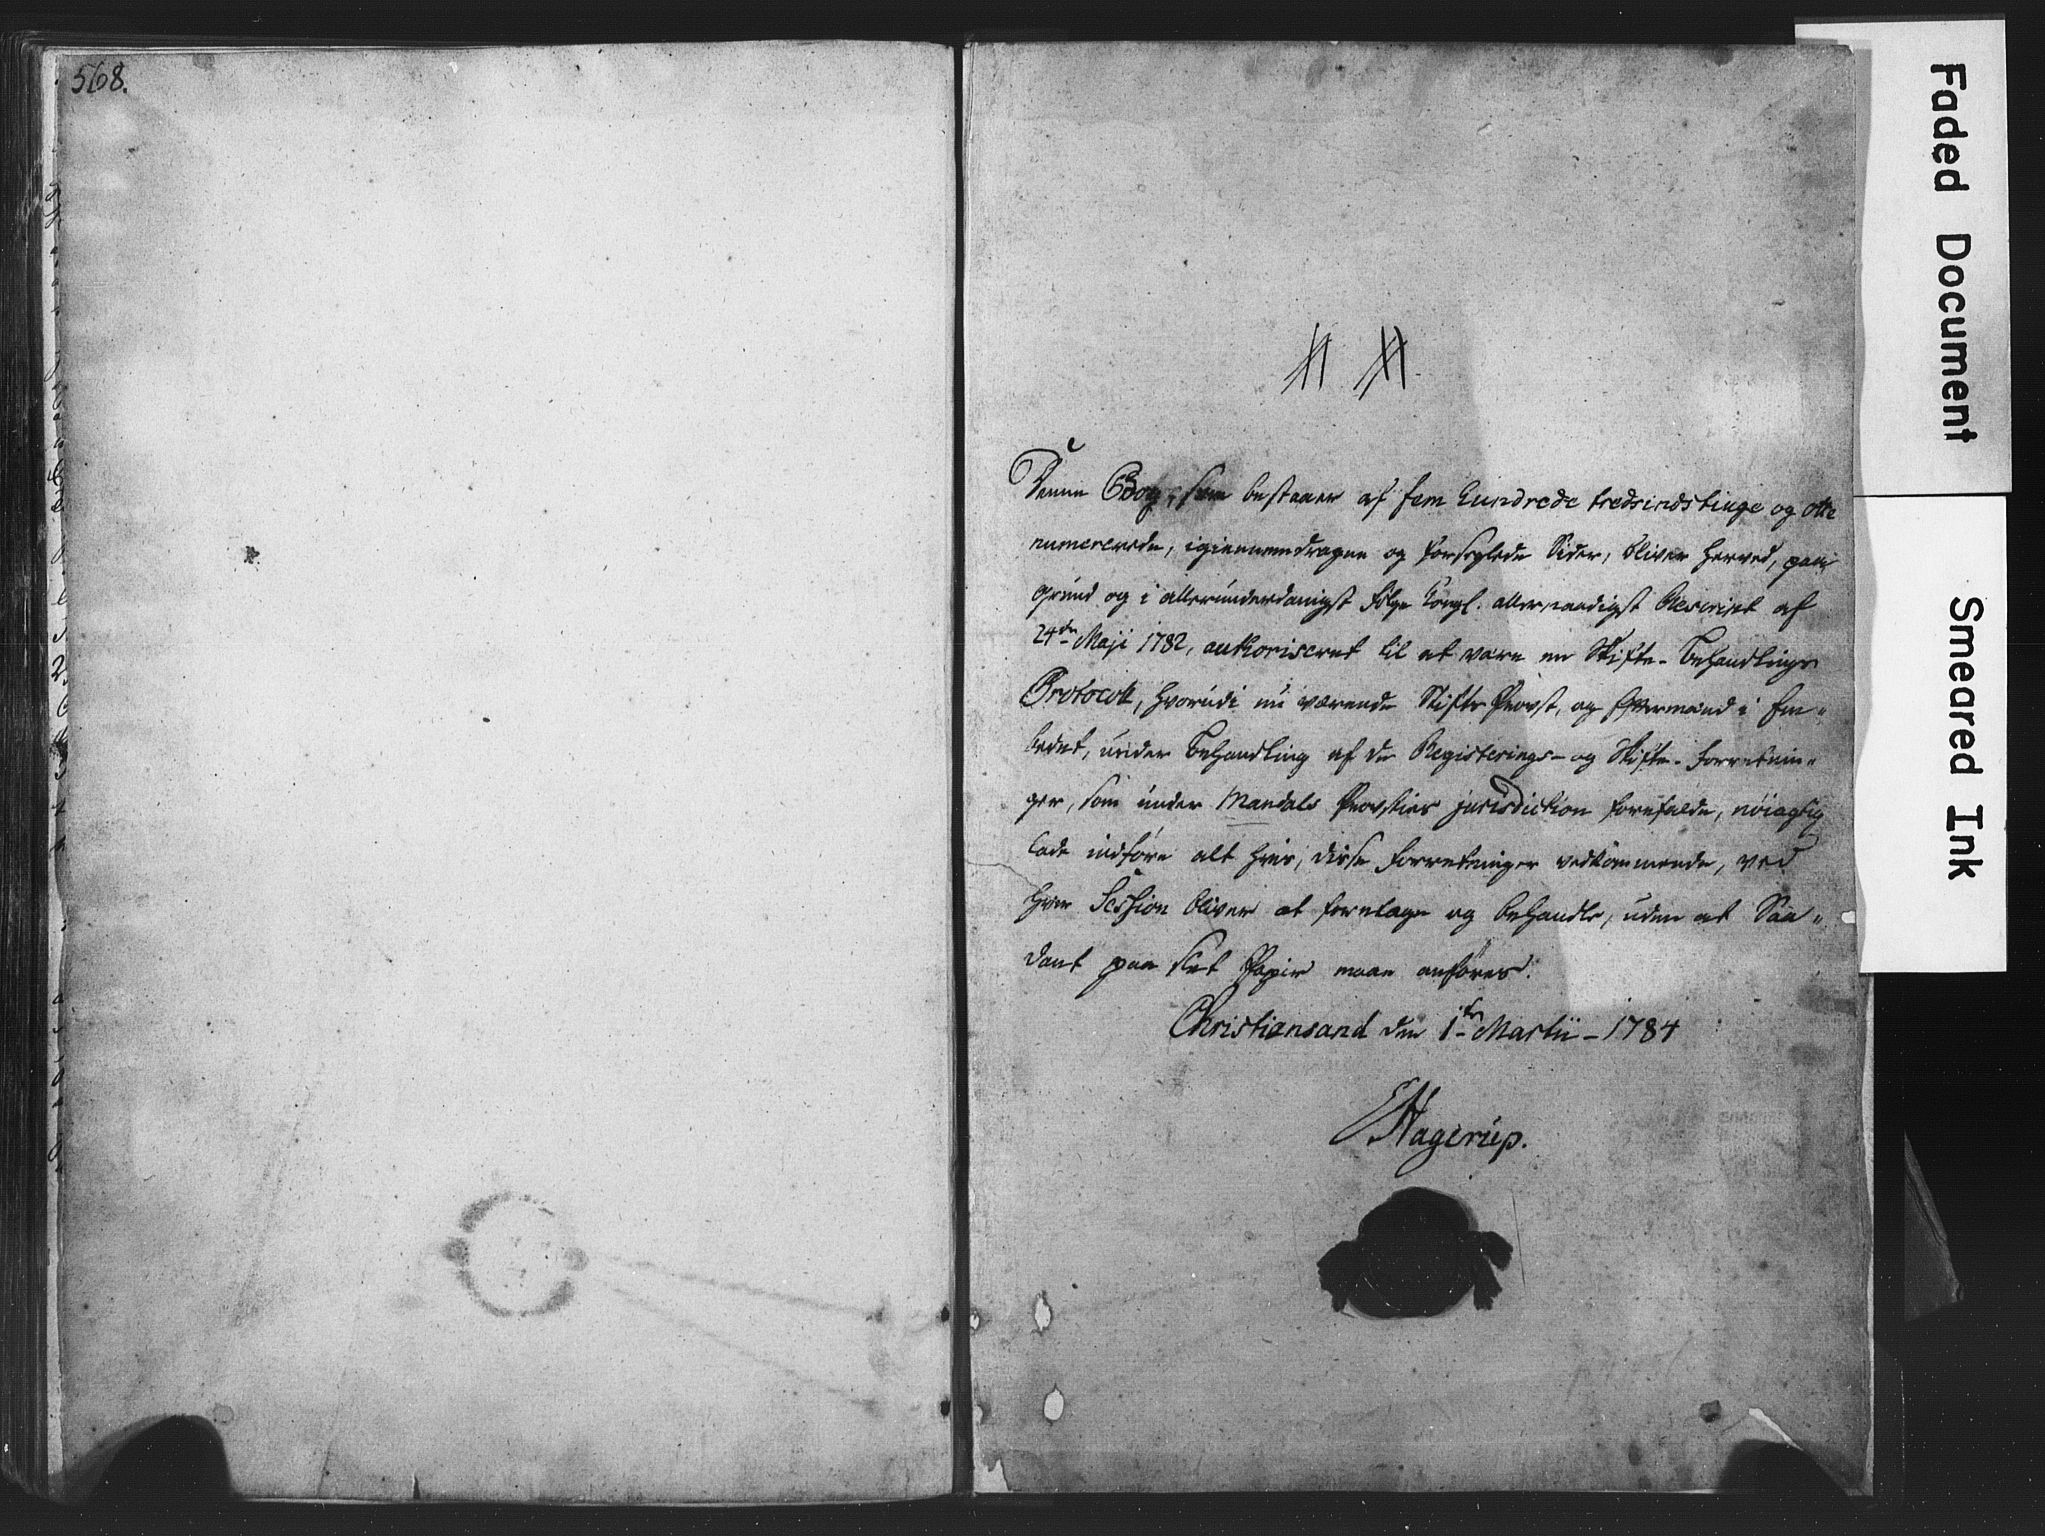 568.
Denne Bog, som bestaaer af fem hundrede tredsindstiuge og otte
numererede, igiennemdragne og forseglede Sider, bliver herved, paa
grund og i allerunderdanigst følge Kongl. allernaadigst Rescript af
24de Maji 1782, authoriseret til at være en Skifte-Behandlings
Protocoll, hvorudi nu værende Stifts Provst, og Eftermænd i Em-
bedet, under Behandling af de Registerings- og Skifte-Forretnin-
ger, som under Mandals Provsties jurisdiction forefalde, nøiagtig
lade indføre alt hvis, disse Forretninger vedkommende, ved
hver Session bliver at foretage og behandle, uden at Saa-
dant paa slet Papir maae anføres.
Christiansand den 1te Martii - 1784
Hagerup.
Faded Document
Smeared Ink